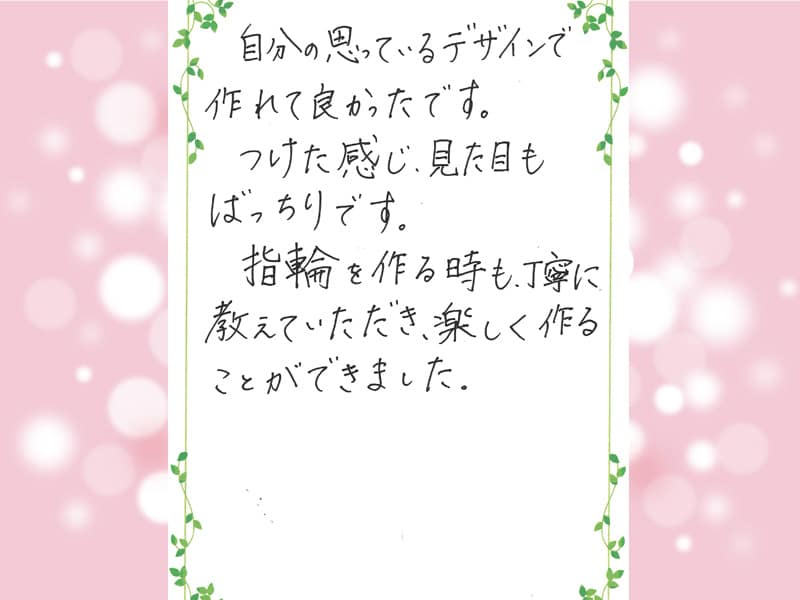 自分の思っているデザインで
作れて良かったです。
つけた感じ、見た目も
ばっちりです。
指輪を作る時も、丁寧に
教えていただき、楽しく作る
ことができました。